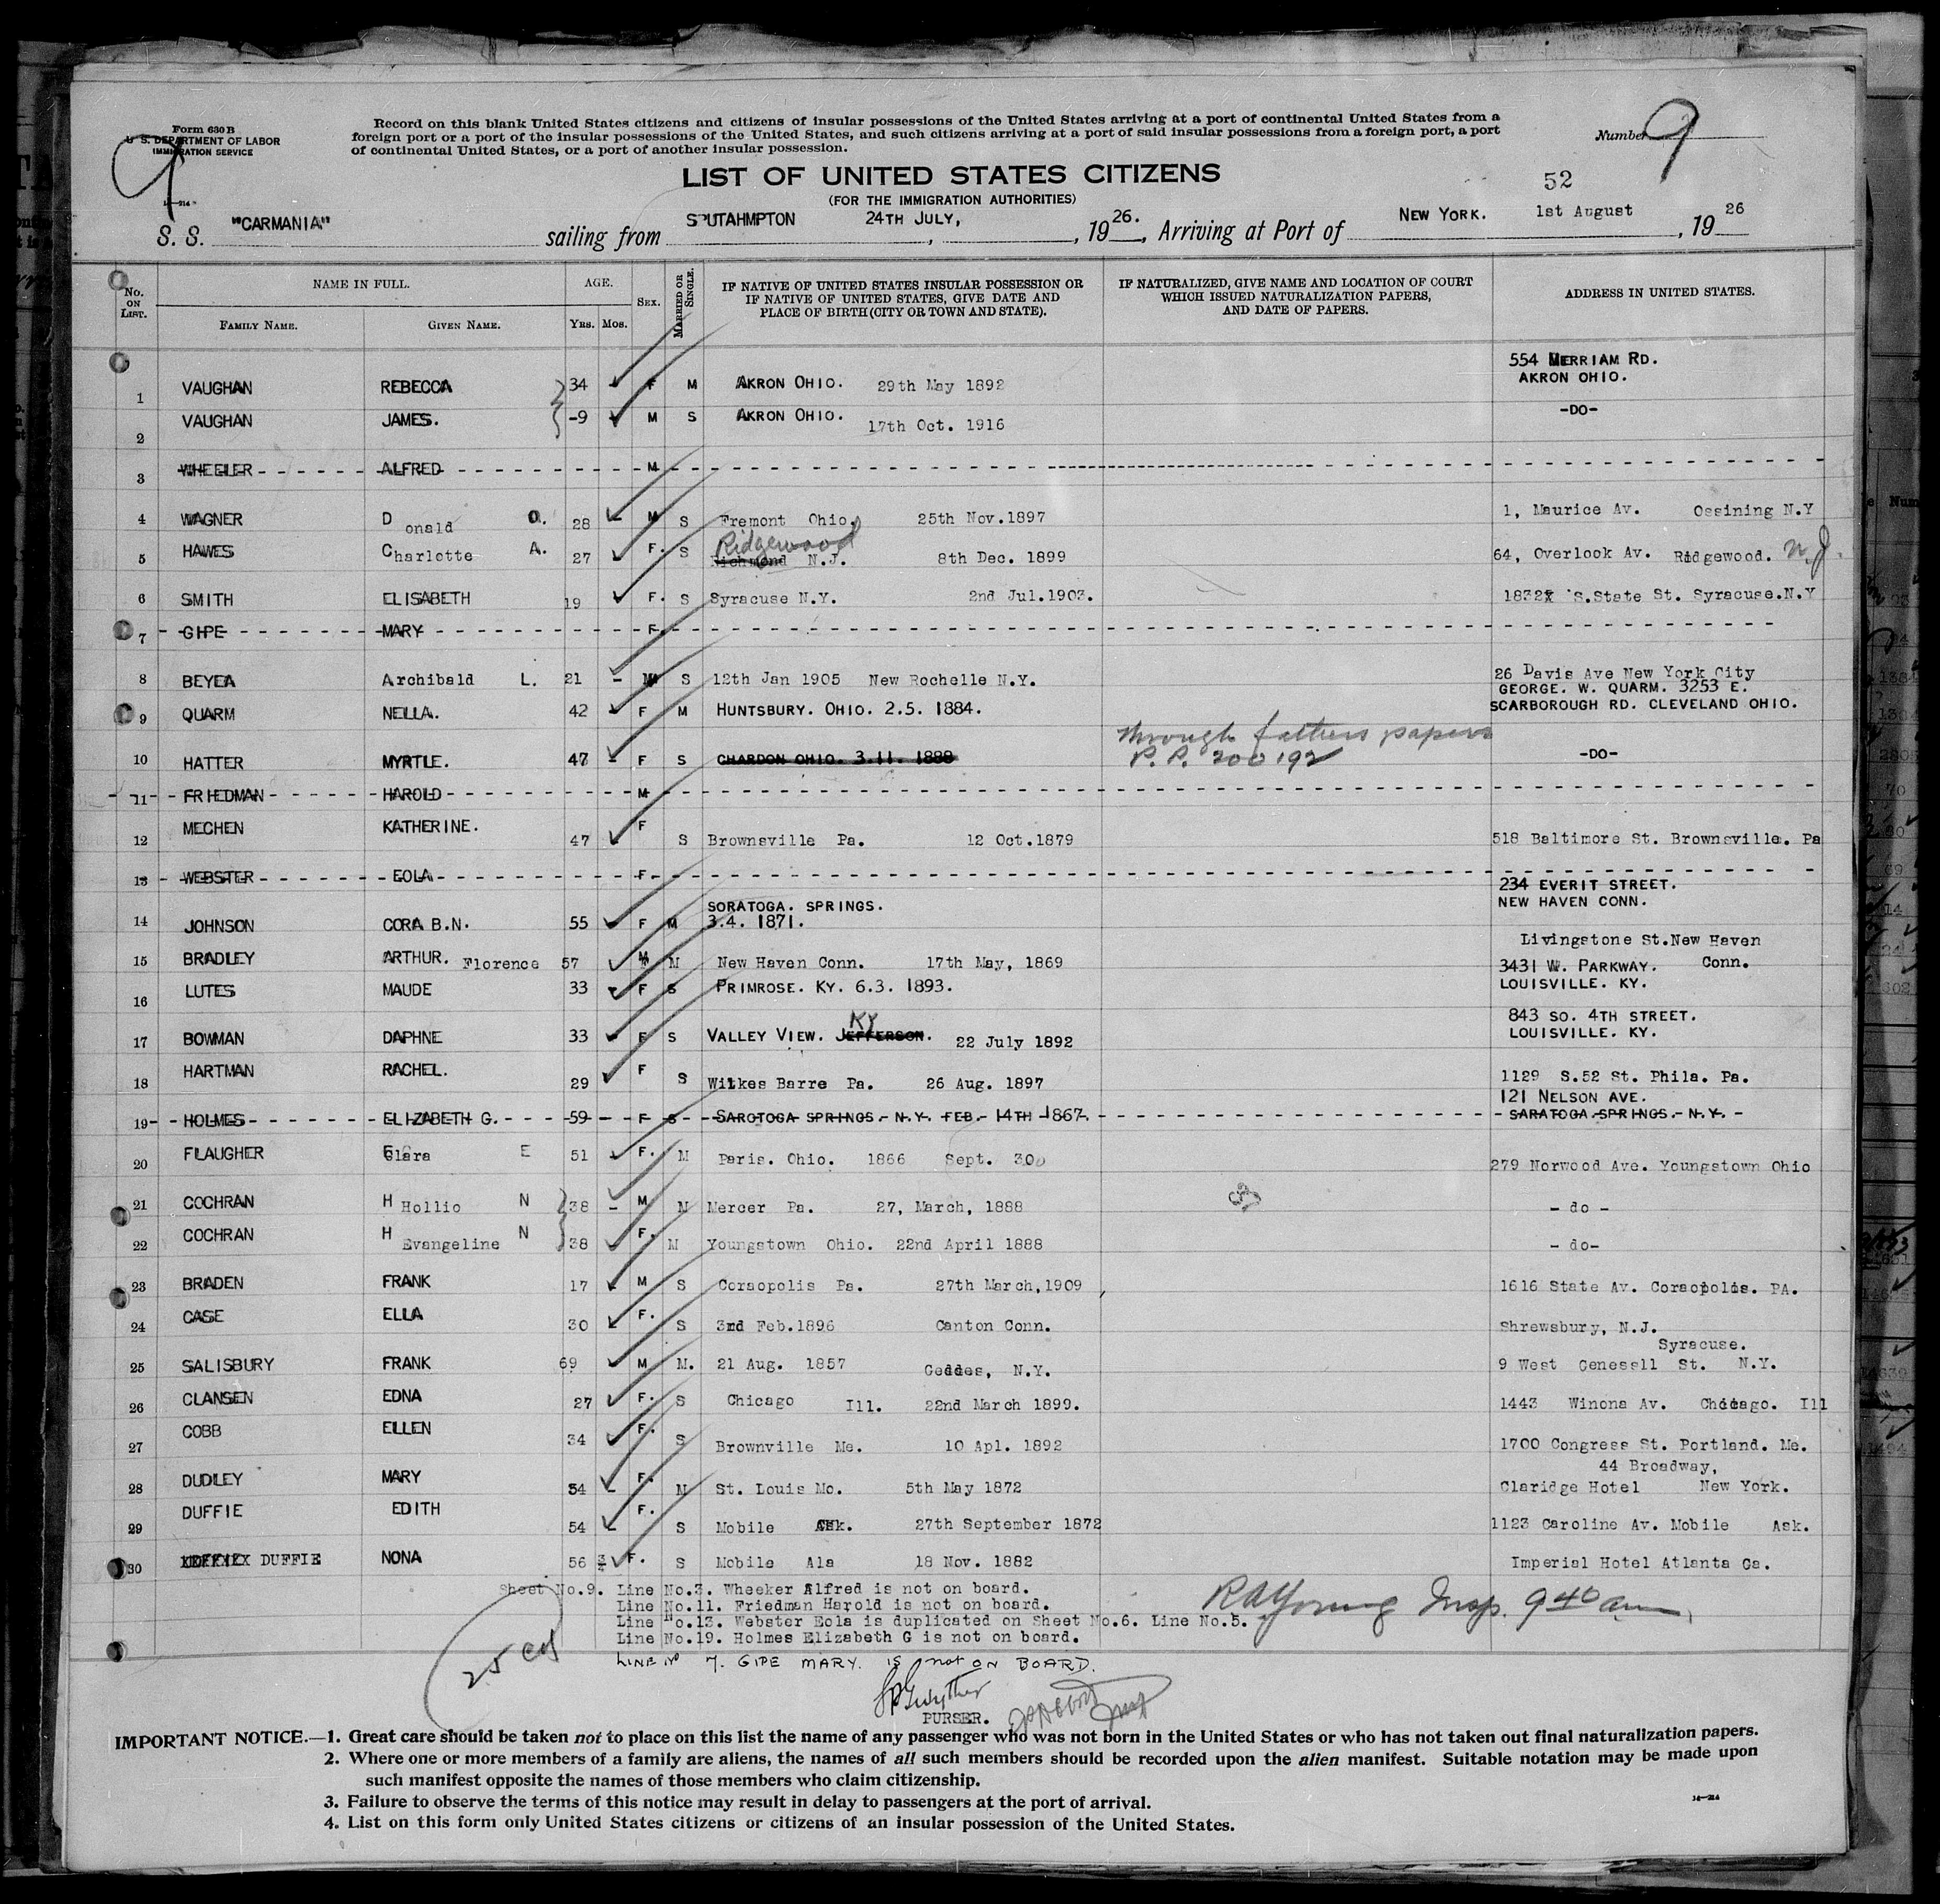 Form 630 B
U. S. DEPARTMENT OF LABOR
IMMIGRATION SERVICE
14—214
9
Record on this blank United States citizens and citizens of insular possessions of the United States arriving at a port of continental United States from a
foreign port or a port of the insular possessions of the United States, and such citizens arriving at a port of said insular possessions from a foreign port, a port
of continental United States, or a port of another insular possession.
Number 9
LIST OF UNITED STATES CITIZENS
(FOR THE IMMIGRATION AUTHORITIES)
52
S. S. "CARMANIA" sailing from SOUTAHMPTON 24TH JULY, , 1926. , Arriving at Port of NEW YORK. 1st August , 19 26
No. ON LIST. NAME IN FULL. AGE. SEX. MARRIED OR SINGLE. IF NATIVE OF UNITED STATES INSULAR POSSESSION OR IF NATIVE OF UNITED STATES, GIVE DATE AND PLACE OF BIRTH (CITY OR TOWN AND STATE). IF NATURALIZED, GIVE NAME AND LOCATION OF COURT WHICH ISSUED NATURALIZATION PAPERS, AND DATE OF PAPERS. ADDRESS IN UNITED STATES.
FAMILY NAME. GIVEN NAME. YRS. MOS.
1 VAUGHAN REBECCA 34 F M AKRON OHIO. 29th May 1892 554 MERRIAM RD. AKRON OHIO.
2 VAUGHAN JAMES. 9 M S AKRON OHIO. 17th Oct. 1916 -DO-
3 WHEELER ALFRED M
4 WAGNER Donald O. 28 M S Fremont Ohio. 25th Nov.1897 1, Maurice Av. Ossining N.Y
5 HAWES Charlotte A. 27 F. S Richmond Ridgewood N.J. 8th Dec. 1899 64, Overlook Av. Ridgewood. N.J.
6 SMITH ELISABETH 19 F. S Syracuse N.Y. 2nd Jul.1903. 1832x S.State St. Syracuse.N.Y
7 GIPE MARY F.
8 BEYEA Archibald L. 21 M S 12th Jan 1905 New Rochelle N.Y. 26 Davis Ave New York City
9 QUARM NELLA. 42 F M HUNTSBURY. OHIO. 2.5. 1884. GEORGE. W. QUARM. 3253 E. SCARBOROUGH RD. CLEVELAND OHIO.
10 HATTER MYRTLE. 47 F S CHARDON OHIO. 3.11. 1888 through fathers papers P.P. 200192 -DO-
11 FRIEDMAN HAROLD M
12 MECHEN KATHERINE. 47 F S Brownsville Pa. 12 Oct.1879 518 Baltimore St. Brownsville. Pa
13 WEBSTER EOLA F
14 JOHNSON CORA B.N. 55 F M SORATOGA. SPRINGS. 3.4. 1871. 234 EVERIT STREET. NEW HAVEN CONN.
15 BRADLEY ARTHUR. Florence 57 M M New Haven Conn. 17th May, 1869 Livingstone St.New Haven Conn.
16 LUTES MAUDE 33 F S PRIMROSE. KY. 6.3. 1893. 3431 W. PARKWAY. LOUISVILLE. KY.
17 BOWMAN DAPHNE 33 F S VALLEY VIEW. JEFFERSON. KY 22 July 1892 843 SO. 4TH STREET. LOUISVILLE. KY.
18 HARTMAN RACHEL. 29 F S Wilkes Barre Pa. 26 Aug. 1897 1129 S.52 St. Phila. Pa.
19 HOLMES ELIZABETH G. 59 F S SAROTOGA SPRINGS. N.Y. FEB. 14TH 1867. 121 NELSON AVE. SARATOGA SPRINGS. N.Y.
20 FLAUGHER Clara E 51 F. M Paris. Ohio. 1866 Sept. 30 279 Norwood Ave. Youngstown Ohio
21 COCHRAN H Hollic N 38 M M Mercer Pa. 27, March, 1888 - do -
22 COCHRAN H Evangeline N 38 F. M Youngstown Ohio. 22nd April 1888 - do-
23 BRADEN FRANK 17 M S Coraopolis Pa. 27th March,1909 1616 State Av. Coraopolis. PA.
24 CASE ELLA 30 F. S 3rd Feb.1896 Canton Conn. Shrewsbury, N.J.
25 SALISBURY FRANK 69 M M. 21 Aug. 1857 Geddes, N.Y. 9 West Genesell St. Syracuse. N.Y.
26 CLANSEN EDNA 27 F. S Chicago Ill. 22nd March 1899. 1443 Winona Av. Chicago. Ill
27 COBB ELLEN 34 F. S Brownville Me. 10 Apl. 1892 1700 Congress St. Portland. Me.
28 DUDLEY MARY 54 F. M St. Louis Mo. 5th May 1872 44 Broadway, Claridge Hotel New York.
29 DUFFIE EDITH 54 F. S Mobile Ask. 27th September 1872 1123 Caroline Av. Mobile Ask.
30 DUFFIE NONA 56 F. S Mobile Ala 18 Nov. 1882 Imperial Hotel Atlanta Ga.
Sheet No.9. Line No.3. Wheeker Alfred is not on board.
Line No.11. Friedman Harold is not on board.
Line No.13. Webster Eola is duplicated on Sheet No.6. Line No.5.
Line No.19. Holmes Elizabeth G is not on board.
LINE No 7. GIPE MARY. IS not ON BOARD.
RA Young Insp. 9 40 am
25 
PURSER.
IMPORTANT NOTICE.—1. Great care should be taken not to place on this list the name of any passenger who was not born in the United States or who has not taken out final naturalization papers.
2. Where one or more members of a family are aliens, the names of all such members should be recorded upon the alien manifest. Suitable notation may be made upon
such manifest opposite the names of those members who claim citizenship.
3. Failure to observe the terms of this notice may result in delay to passengers at the port of arrival.
4. List on this form only United States citizens or citizens of an insular possession of the United States.
14—214